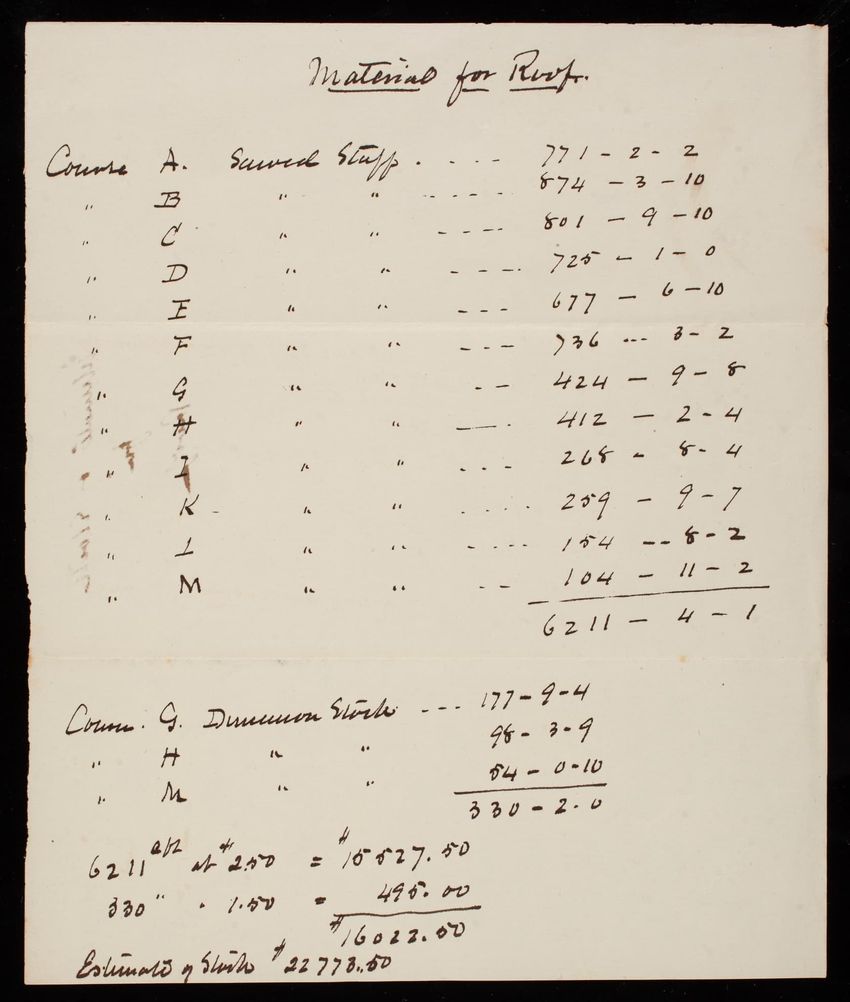 Material for Roof.
Course A. Sawed Stuff . - - - 771 - 2 - 2
" B " " - - - - - 874 - 3 - 10
" C " " - - - - 801 - 9 - 10
" D " " - - - - 725 - 1 - 0
" E " " - - - 677 - 6 - 10
" F " " - - - 736 --- 3 - 2
" G " " - - 424 - 9 - 8
" H " " — - 412 - 2 - 4
" I " " - - - 268 - 8 - 4
" K - " " - - - - 259 - 9 - 7
" L " " - - - - 154 -- 8 - 2
" M " " - - 104 - 11 - 2
6211 - 4 - 1
Course. G. Dimension Stock --- 177 - 9 - 4
" H " " 98 - 3 - 9
" M " " 54 - 0 - 10
330 - 2 - 0
6211 cft at $2.50 = $15527.50
330 " " 1.50 = 495.00
$16022.50
Estimate of Stock $22773.50